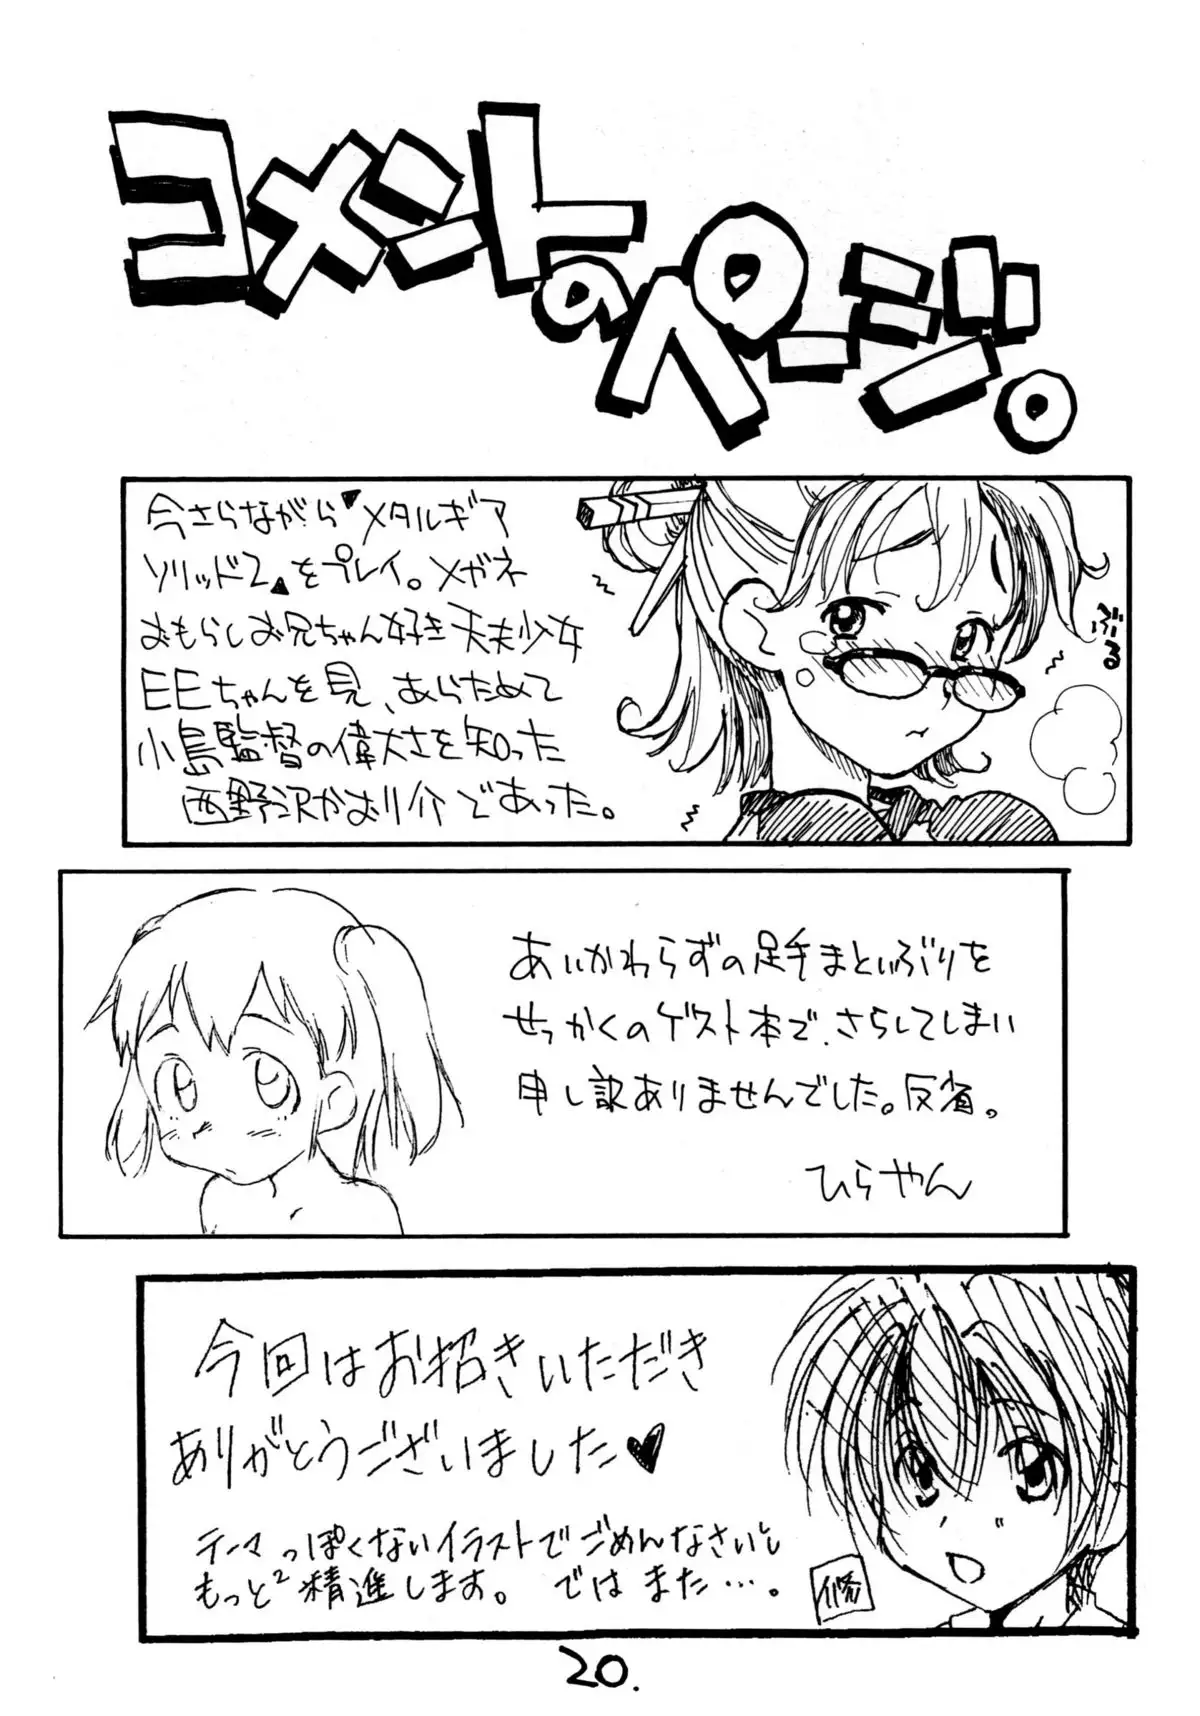 コメントのページ。
今さらながら「メタルギア
ソリッド2」をプレイ。メガネ
おもらしお兄ちゃん好き天才少女
EEちゃんを見、あらためて
小島監督の偉大さを知った
西野沢かおり介であった。
ぶるる
あいかわらずの足手まといぶりを
せっかくのゲスト本で、さらしてしまい
申し訳ありませんでした。反省。
ひらやん
今回はお招きいただき
ありがとうございました♥
テーマっぽくないイラストでごめんなさい。
もっと²精進します。 ではまた…。
修
20.